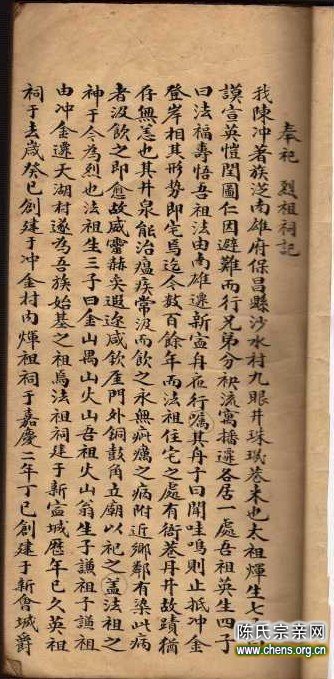 奉祀 烈祖祠記
我陳冲著族迄南雄府保昌縣沙水村九眼井珠璣巷来也太祖煇生七子曰
謨宣英愷閏圖仁因避難而行兄弟分袂流寓播遷各居一處吾祖英生四子
曰法福壽悟吾祖法由南雄遷新寧舟在行囑其舟子曰聞哇鳴則止抵冲金
登岸相其形勢即宅焉迄今數百餘年而法祖住宅之處有衙巷丹井故蹟猶
存無恙也其井泉能治瘟疾常汲而飲之永無疵癘之病附近鄉鄰有染此病
者汲飲之即愈故威靈赫奕遐迩咸欽厓門外銅鼓角立廟以祀之蓋法祖之
神于今為烈也法祖生三子曰金山禺山火山吾祖火山翁生子謙祖于謙祖
由冲金遷大湖村遂為吾族始基之祖焉法祖祠建于新寧城歷年已久英祖
祠于去歲癸巳創建于冲金村内煇祖祠于嘉慶二年丁巳創建于新會城爵
陈氏宗亲网
www.chens.org.cn